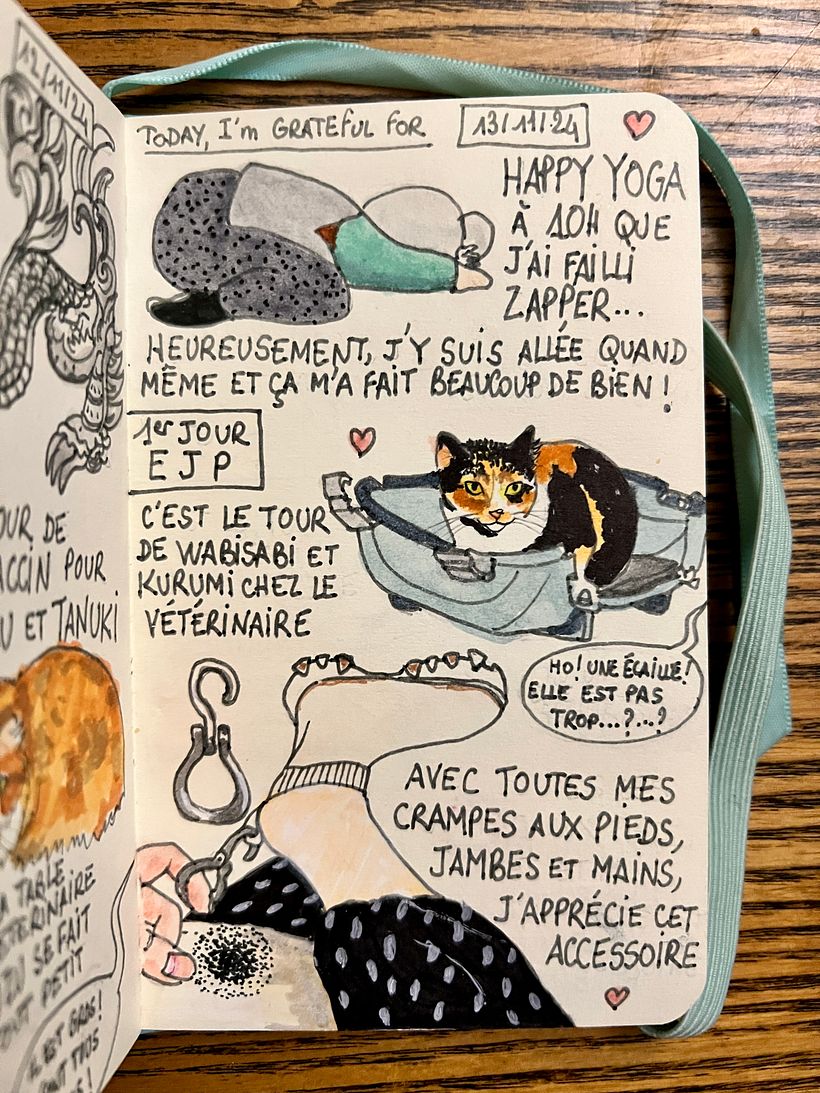 12/11/24
DE
POUR
ET TANUKI
TABLE
SE FAIT
PETIT
GROS!
TODAY, I'm GRATEFUL FOR
13/11/24
HAPPY YOGA
À 10H QUE
J'AI FAILLI
ZAPPER...
HEUREUSEMENT, J'Y SUIS ALLÉE QUAND
MÊME ET ÇA M'A FAIT BEAUCOUP DE BIEN !
1er JOUR
EJP
C'EST LE TOUR
DE WABISABI ET
KURUMI CHEZ LE
VÉTÉRINAIRE
HO! UNE ÉCAILLE!
ELLE EST PAS
TROP...?...?
AVEC TOUTES MES
CRAMPES AUX PIEDS,
JAMBES ET MAINS,
J'APPRÉCIE CET
ACCESSOIRE